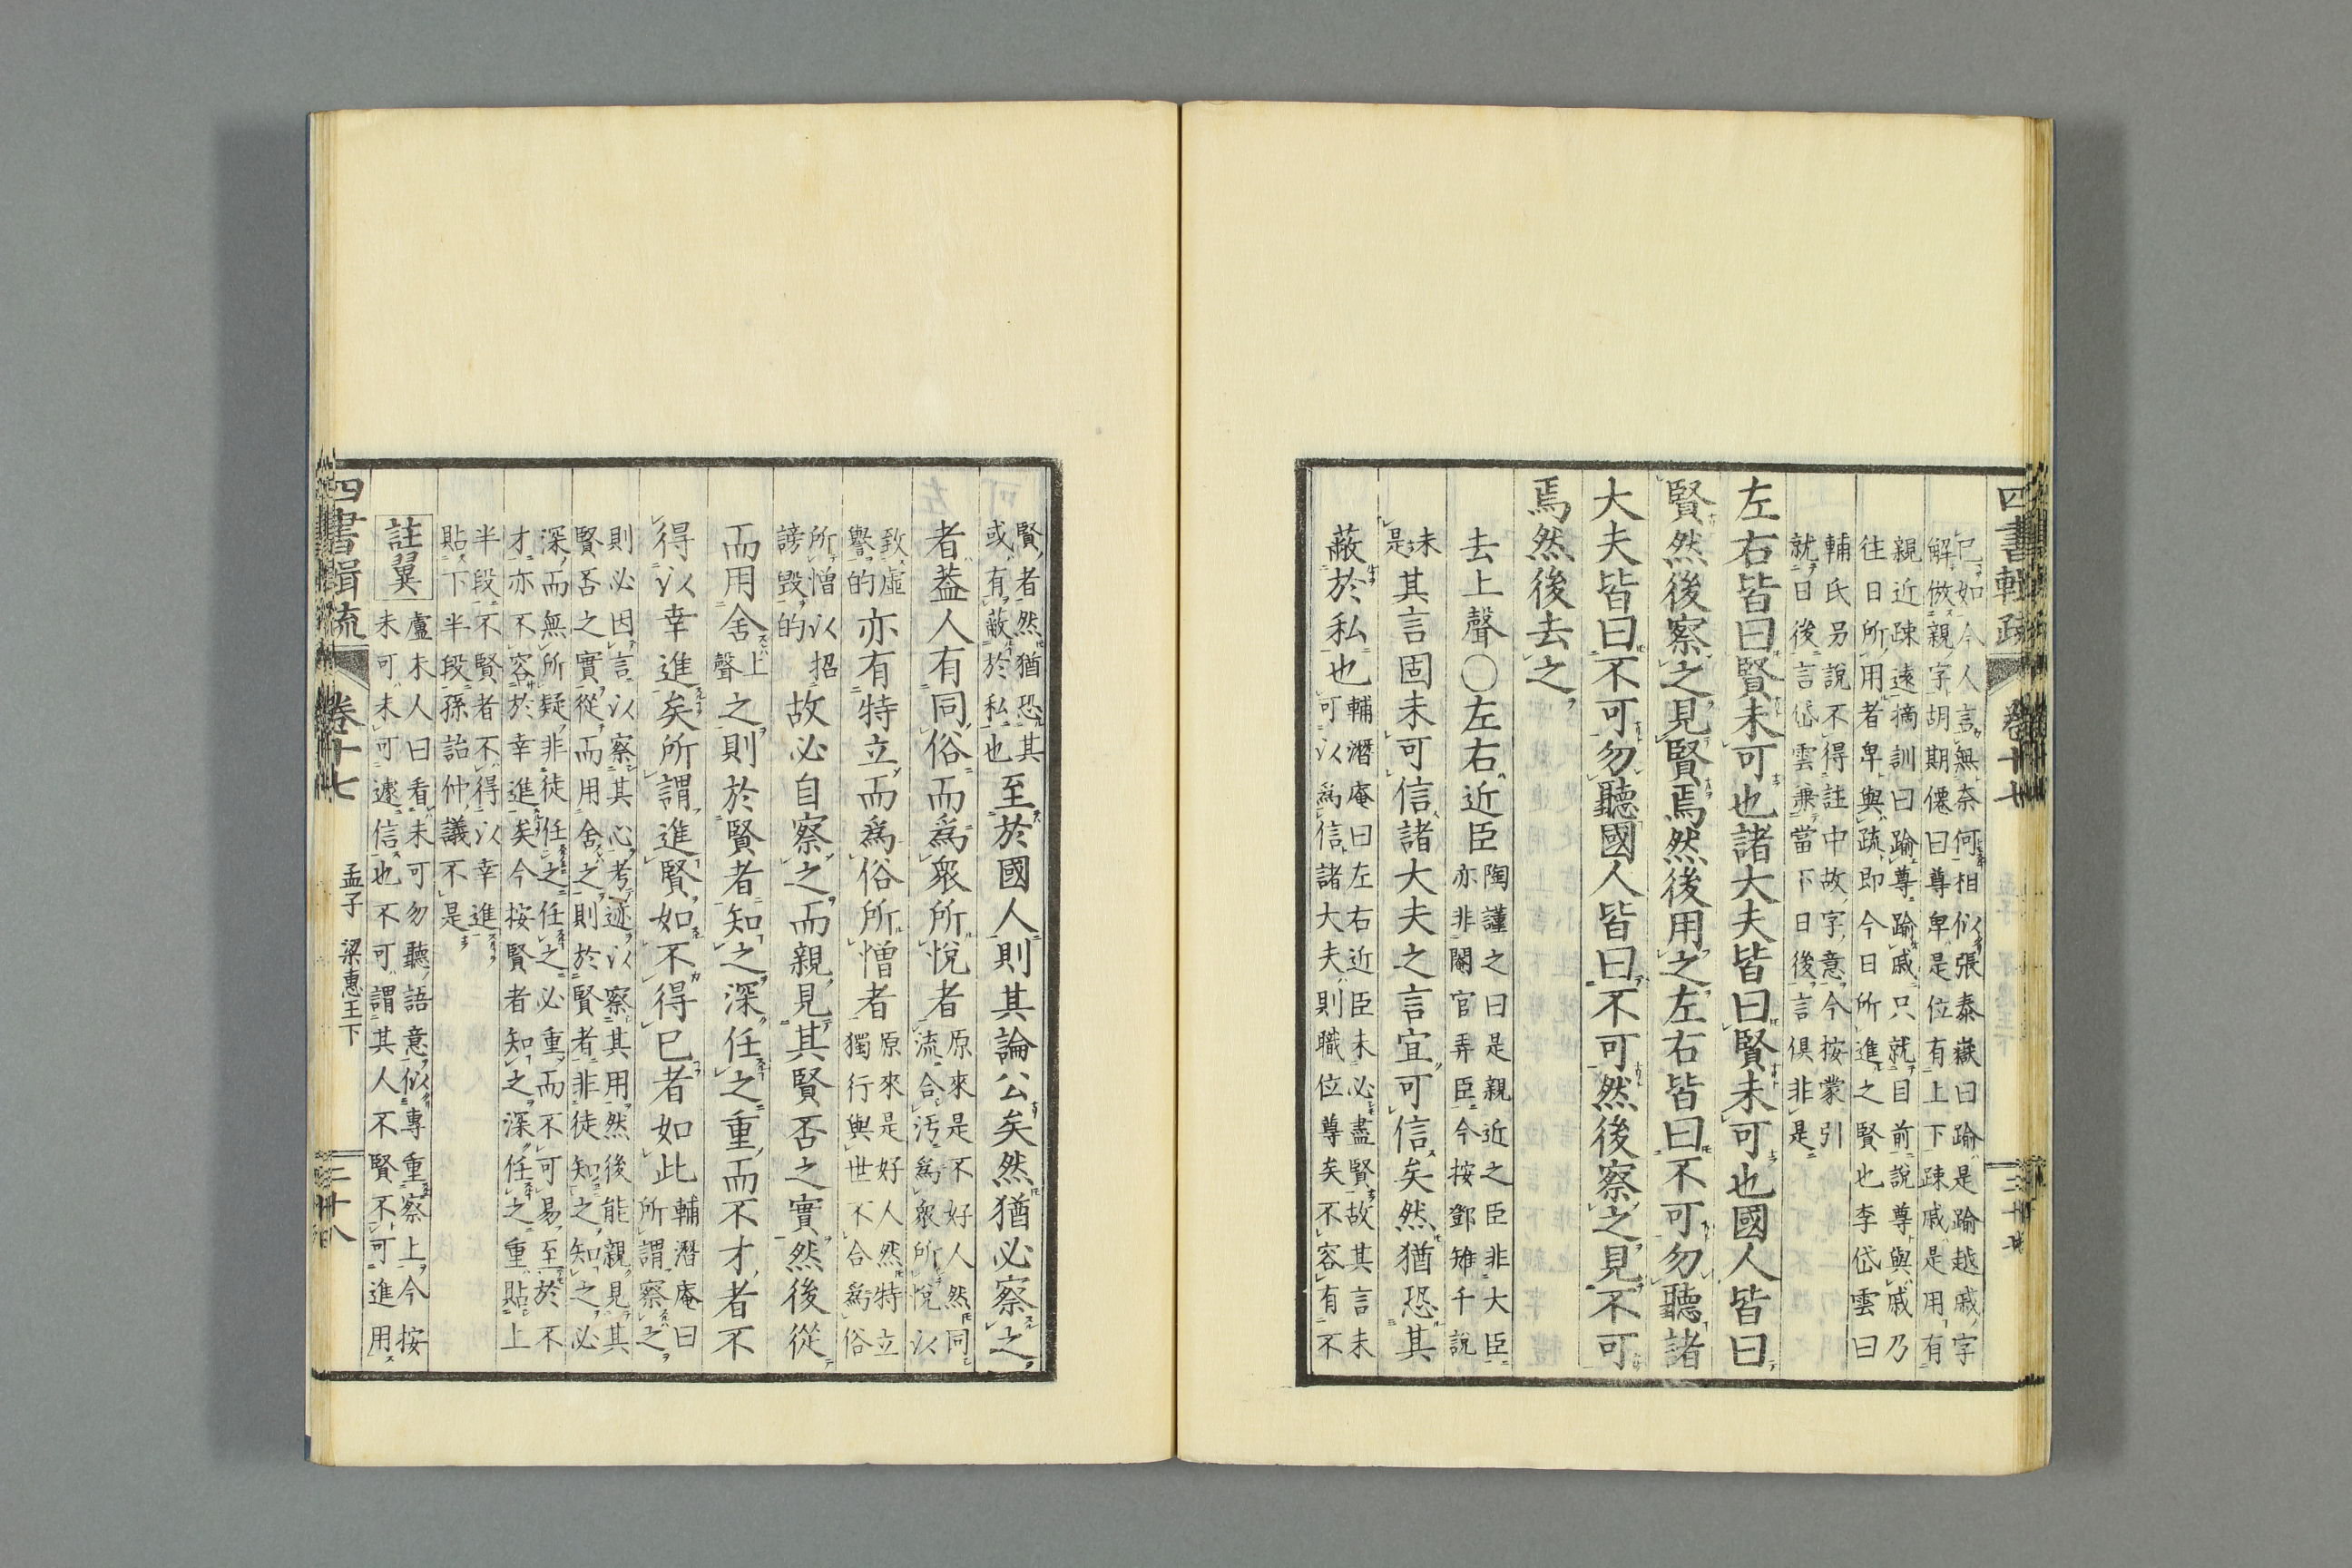 四書輯疏 卷十七
已如今人言無奈何相似張泰嶽曰踰是踰越戚字
解倣親字胡期僊曰尊卑是位有上下疎戚是用有
親近疎遠摘訓曰踰尊踰戚只就目前說尊與戚乃
往日所用者卑與疏即今日所進之賢也李岱雲曰
輔氏另說不得註中故字意今按蒙引
就日後言岱雲乘當下日後言倶非是
左右皆曰賢未可也諸大夫皆曰賢未可也國人皆曰
賢然後察之見賢焉然後用之左右皆曰不可勿聽諸
大夫皆曰不可勿聽國人皆曰不可然後察之見不可
焉然後去之
去上聲○左右近臣
陶謹之曰是親近之臣非大臣
亦非閹官弄臣今按鄧雉千說
未
是
其言固未可信諸大夫之言宜可信矣然猶恐其
蔽於私也
輔潛庵曰左右近臣未必盡賢故其言未
可以爲信諸大夫則職位尊矣不容有不
賢者然猶恐其
或有蔽於私也
至於國人則其論公矣然猶必察之
者葢人有同俗而爲衆所悅者
原來是不好人然同
流合汚爲衆所悅以
致虛
譽的
亦有特立而爲俗所憎者
原來是好人然特立
獨行與世不合爲俗
所憎以招
謗毀的
故必自察之而親見其賢否之實然後從
而用舍
上
聲
之則於賢者知之深任之重而不才者不
得以幸進矣所謂進賢如不得已者如此
輔潛庵曰
所謂察之
則必因言以察其心考迹以察其用然後能親見其
賢否之實從而用舍之則於賢者非徒知之知之必
深而無所疑非徒任之任之必重而不可易至於不
才亦不容於幸進矣今按賢者知之深任之重貼上
半段不賢者不得以幸進
貼下半段孫詒仲議不是
註翼
盧未人曰看未可勿聽語意似專重察上今按
未可未可遽信也不可謂其人不賢不可進用
四書輯疏 卷十七 孟子 梁惠王下 三十八